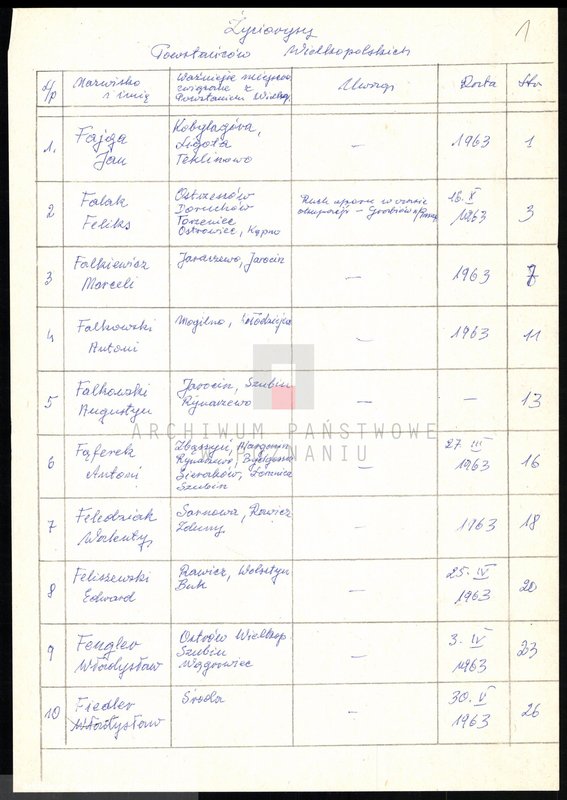 1
Życiorysy
Powstańców Wielkopolskich
L/p Nazwisko i imię Ważniejsze miejscow. związane z Powstaniem Wielkp. Uwagi Data Str
1. Fajga Jan Kobylagóra, Ligota Teklinowo — 1963 1
2 Falak Feliks Ostrzeszów Doruchów Torzeniec Ostrowiec, Kępno Ruch oporu w czasie okupacji – 16. X 1963 3
3 Falkiewicz Marceli Jaraczewo, Jarocin — 1963 7
4 Falkowski Antoni Mogilno, — 1963 11
5 Falkowski Augustyn Jarocin, Szubin Rynarzewo — — 13
6 Fąferek Antoni Zbąszyń, Margonin Rynarzewo, Bydgoszcz Sieraków, Szubin — 27 III 1963 16
7 Feledziak Walenty Sarnowa, Rawicz Zduny — 1963 18
8 Feliszewski Edward Rawicz, Wolsztyn Buk — 25. IV 1963 20
9 Fengler Władysław Ostrów Wielkop. Szubin Wągrowiec — 3. IV 1963 23
10 Fiedler Władysław Środa — 30. V 1963 26
ARCHIWUM PAŃSTWOWE
W POZNANIU